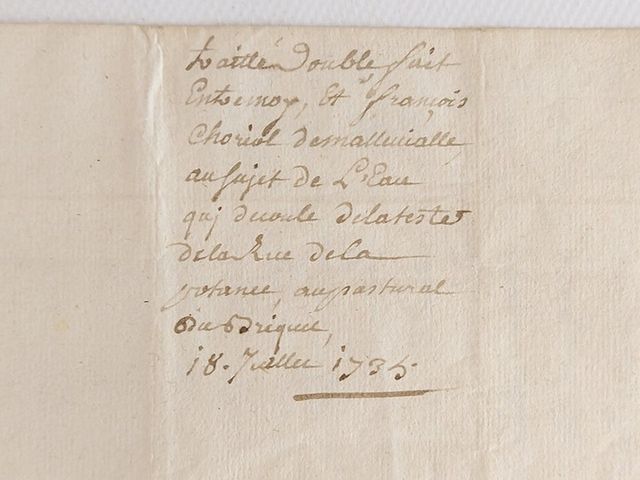 traitté double fait
Entre moy, Et françois
Choriol demalleuialle,
au sujet de L'Eau
quj decoule delateste
delaRue dela
votanee, aupastural
du
18. Juillet 1735.